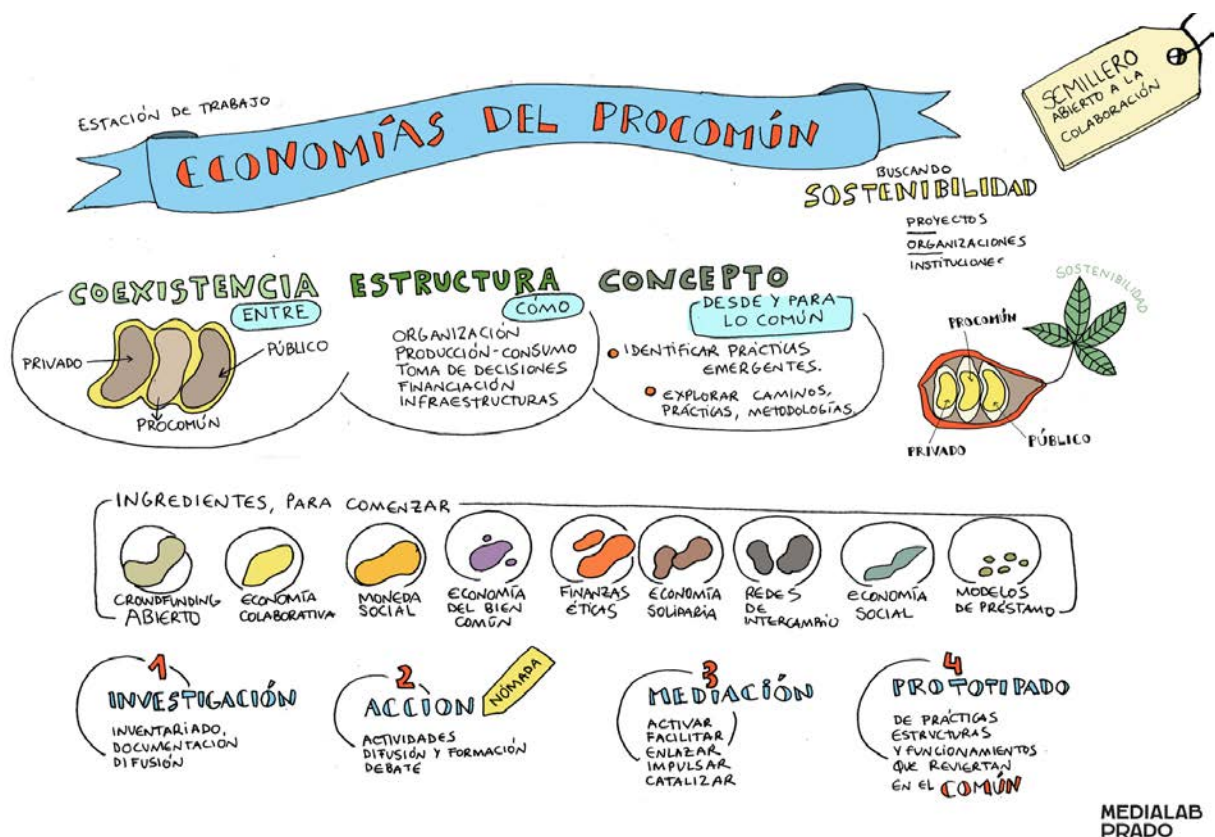 ESTACIÓN DE TRABAJO
ECONOMÍAS DEL PROCOMÚN
SEMILLERO
ABIERTO A LA
COLABORACIÓN
BUSCANDO
SOSTENIBILIDAD
PROYECTOS
ORGANIZACIONES
INSTITUCIONES
COEXISTENCIA
ENTRE
PRIVADO
PÚBLICO
PROCOMÚN
ESTRUCTURA
CÓMO
ORGANIZACIÓN
PRODUCCIÓN-CONSUMO
TOMA DE DECISIONES
FINANCIACIÓN
INFRAESTRUCTURAS
CONCEPTO
DESDE Y PARA
LO COMÚN
IDENTIFICAR PRÁCTICAS
EMERGENTES.
EXPLORAR CAMINOS,
PRÁCTICAS, METODOLOGÍAS.
SOSTENIBILIDAD
PROCOMÚN
PRIVADO
PÚBLICO
INGREDIENTES, PARA COMENZAR
CROWDFUNDING
ABIERTO
ECONOMÍA
COLABORATIVA
MONEDA
SOCIAL
ECONOMÍA
DEL BIEN
COMÚN
FINANZAS
ÉTICAS
ECONOMÍA
SOLIDARIA
REDES
DE
INTERCAMBIO
ECONOMÍA
SOCIAL
MODELOS
DE PRÉSTAMO
1
INVESTIGACIÓN
INVENTARIADO,
DOCUMENTACIÓN
DIFUSIÓN
2
ACCION
NÓMADA
ACTIVIDADES
DIFUSIÓN Y FORMACIÓN
DEBATE
3
MEDIACIÓN
ACTIVAR
FACILITAR
ENLAZAR
IMPULSAR
CATALIZAR
4
PROTOTIPADO
DE PRÁCTICAS
ESTRUCTURAS
Y FUNCIONAMIENTOS
QUE REVIERTAN
EN EL COMÚN
MEDIALAB
PRADO